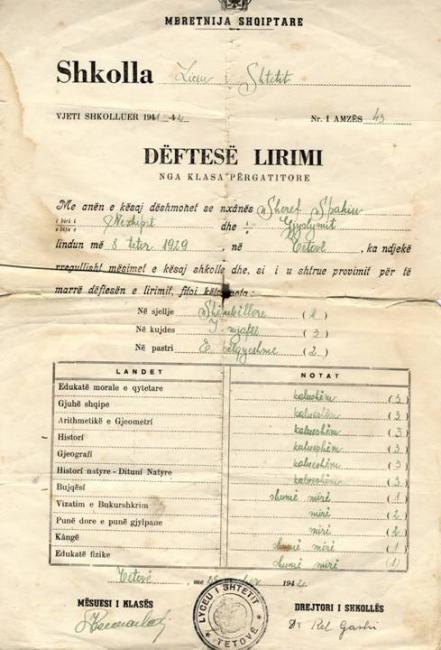 MBRETNIJA SHQIPTARE
Shkolla Liceu i Shtetit
VJETI SHKOLLUER 1941-42 Nr. I AMZËS 43
DËFTESË LIRIMI
NGA KLASA PËRGATITORE
Me anën e kësaj dëshmohet se nxânës Sheref Spahiu
i biri i
e bija e dhe
lindun më 8 tetor 1929, në Tetovë, ka ndjekë
rregullisht mësimet e kësaj shkolle dhe, si i u shtrue provimit për të
marrë dëftesën e lirimit, fitoi këto nota:
Në sjellje Shëmbëllore (2)
Në kujdes I mjaftë (3)
Në pastri E pëlqyeshme (2)
LANDET NOTAT
Edukatë morale e qytetare kalueshëm (3)
Gjuhë shqipe kalueshëm (3)
Arithmetikë e Gjeometri kalueshëm (3)
Histori kalueshëm (3)
Gjeografi kalueshëm (3)
Histori natyre - Dituni Natyre kalueshëm (3)
Bujqësi shumë mirë (1)
Vizatim e Bukurshkrim mirë (2)
Punë dore e punë gjylpane mirë (2)
Kângë shumë mirë (1)
Edukatë fizike shumë mirë (1)
Tetovë, me 1942
MËSUESI I KLASËS DREJTORI I SHKOLLËS
LYCEU I SHTETIT
TETOVË
Gashi